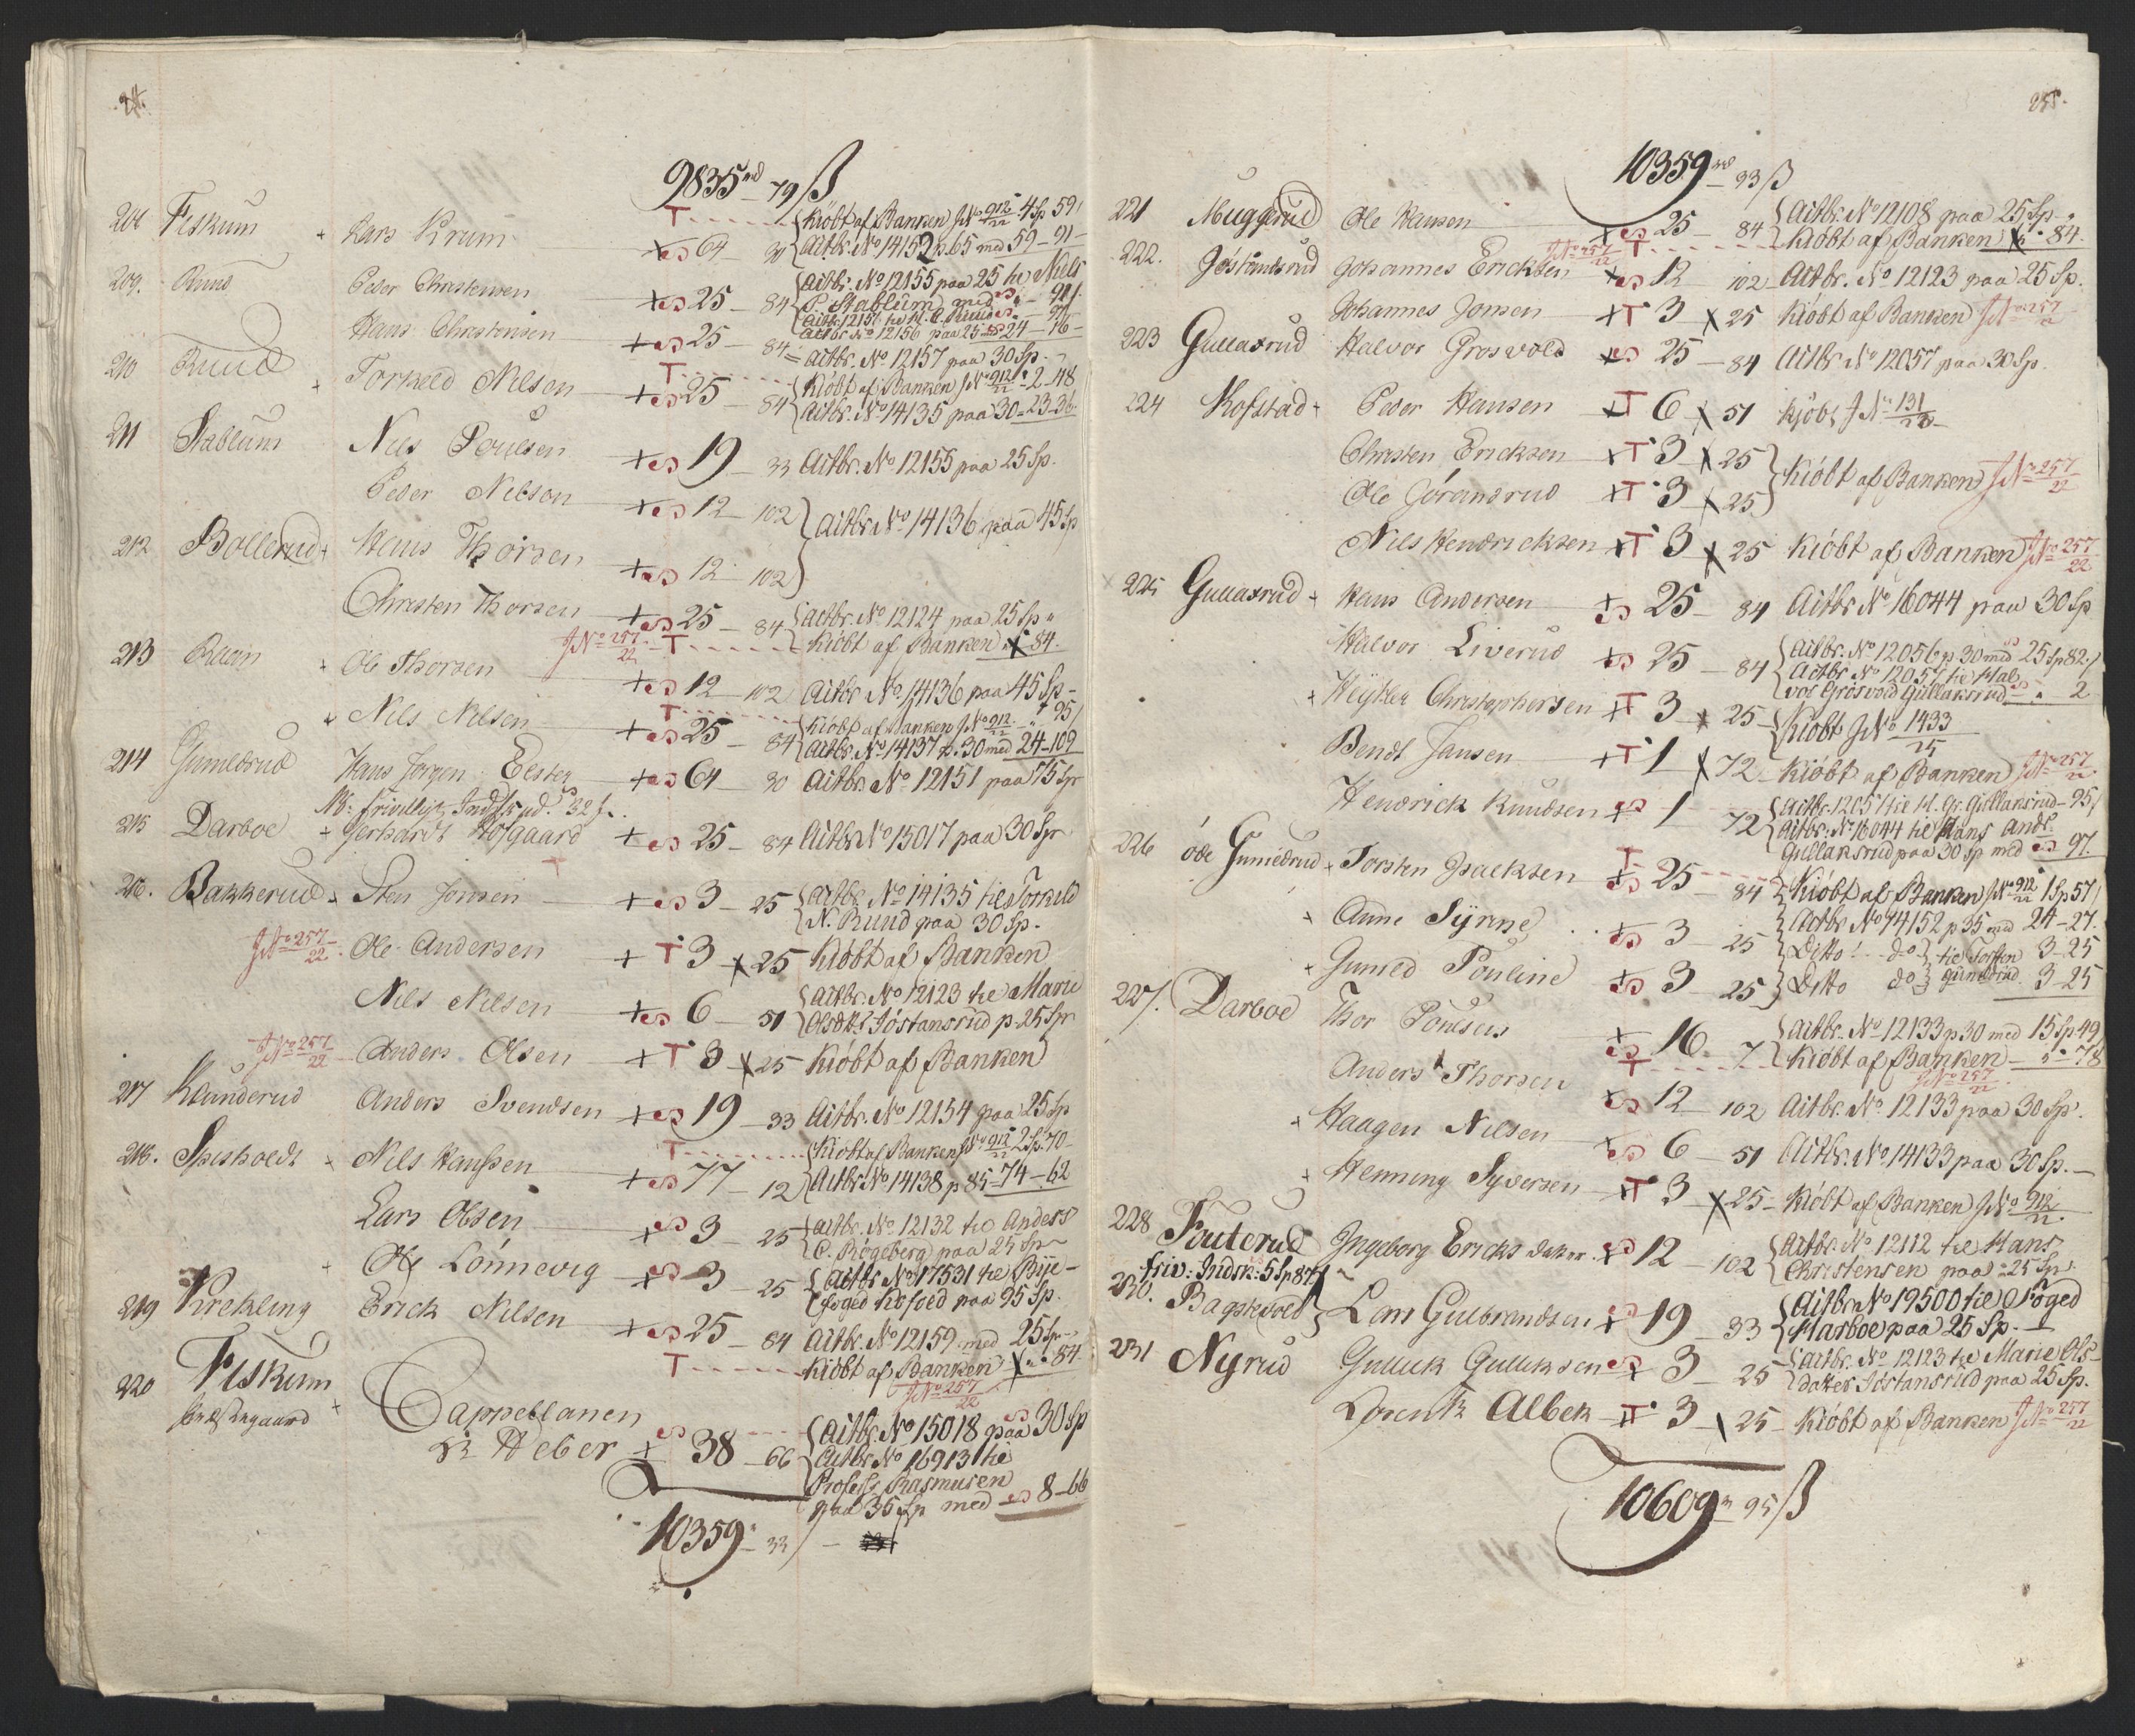 9835 79 ß
208 Fiskum Lars Krum 64 90 Kióbt af Banken J.No 912/22 4 Sp 59
Actbr. No 14152 p. 65 med 59 - 91
209. Ruud Peder Christensen 25 - 84 Actbr. No 12155 paa 25 til Niels
P. Stablum med
Hans Christensen 25 - 84 Actbr. No 12156 paa 25 24 - 16
210 Ruud = Actbr. No 12157 paa 30 Sp.
Torkeld Nilsen 25 - 84 Kióbt af Banken J No 912/22 2 - 48
Actbr. No 14135 paa 30 = 23 - 36
211 Stablum Nils Poulsen 19 - 33 Actbr. No 12155 paa 25 Sp.
Peder Nilsson 12 - 102 Actbr. No 14136 paa 45 Sp
212 Bollerud Hans Thorsen 12 - 102
Christen Thorsen 25 - 84 Actbr. No 12124 paa 25 Sp
J No 257/22 T Kióbt af Banken 84.
213 Ravn Ole Thorsen 12 - 102 Actbr. No 14136 paa 45 Sp -
Nils Nilsen 25 - 84 Kióbt af Banken J No 912/22 95
Actbr. No 14137 p. 30 med 24 - 109
214 Gunildrud Hans Jorgen Eester 64 - 90 Actbr. No 12151 paa 75 Sp
NB: frivilligt Indskud 32
215 Darboe Gerhardt Hofgaard 25 - 84 Actbr. No 15017 paa 30 Sp
216. Bakkerud Sten Jonsen 3 - 25 Actbr. No 14135 til Torkild
N. Ruud paa 30 Sp.
J No 257/22 Ole Andersen T 3 25 Kióbt af Banken
Nils Nilsen 6 - 51 Actbr. No 12123 til Marie
Olsdtr Jóstansrud p. 25 Sp
J No 257/22 Anders Olsen T 3 25 Kióbt af Banken
217 Klunderud Anders Svendsen 19 - 33 Actbr. No 12154 paa 25 Sp
218. Spisholdt Nils Hanssen 77 - 12 Kióbt af Banken J No 912/22 2 Sp. 70
Actbr No 14138 p 85 - 74 - 62
Lars Olsen 3 - 25 Actbr. No 12132 til Anders
C. Rógeberg paa 25 Sp
Ole Lonnevig 3 - 25 Actbr No 17531 til Bye-
foged Kofoed paa 95 Sp.
219 Krekling Erick Nilsen 25 - 84 Actbr. No 12159 med 25 Sp
T Kióbt af Banken 84.
J No 257/22
220 Fiskum Cappellanen
Hr Weber 38 - 66 Actbr. No 15018 paa 30 Sp
Actbr No 16913 til
Profess. Rasmusen
paa 35 Sp med 8 - 66
10359 - 33
10359 - 33 ß
221 Muggerud Ole Hansen 25 - 84 Actbr. No 12108 paa 25 Sp
J No 257/22 T Kióbt af Banken 84.
222. Jóstandsrud Johannes Ericksen 12 102 Actbr. No 12123 paa 25 Sp.
Johannes Jonsen T 3 25 Kióbt af Banken J No 257/22
223 Gullaxrud Halvor Grosvold 25 - 84 Actbr No 12057 paa 30 Sp.
224 Hofstad Peder Hansen T 6 51 Kjóbt J No 131/23
Christen Ericksen T 3 25 Kióbt af Banken J No 257/22
Ole Jórandrud T 3 25
Nils Hendricksen T 3 25 Kióbt af Banken J No 257/22
225 Gullaxrud Hans Andersen 25 - 84 Actbr No 16044 paa 30 Sp
Halvor Liverud 25 - 84 Actbr. No 12056 p. 30 med 25 Sp 82
Actbr No 12057 til Hal
vor Grósvold Gullaksrud 2
Christophersen T 3 25 Kióbt J No 1433/25
Bendt Jansen T 1 72 Kióbt af Banken J No 257/22
Hendrick Knudsen 1 72 Actbr. 12057 til H. Gr. Gullaksrud - 95
Actbr. No 16044 til Hans Andr.
Gullaksrud paa 30 Sp med 97.
226 óde Gunildrud Torsten Isacksen 25 - 84 Kióbt af Banken J No 912/22 1 Sp 57
Actbr No 14152 p 35 med 24 - 27.
Anne Synne 3 - 25 Ditto do til Torsten 3 - 25
Gunild Pouline 3 - 25 Ditto do Gunildrud 3 - 25
227. Darboe Thor Poulsen 16 - 7 Actbr. No 12133 p 30 med 15 Sp 49
T Kióbt af Banken 78
J No 257/22
Anders Thorsen 12 - 102 Actbr. No 12133 paa 30 Sp.
Haagen Nilsen 6 - 51 Actbr. No 14133 paa 30 Sp.
Henning Syversen T 3 25 Kióbt af Banken J No 912/22
228 Fouterud Ingeborg Ericksdatter 12 - 102 Actbr. No 12112 til Hans
Christensen paa 25 Sp.
friv: Indsk: 5 Sp 87
230. Bagstevold Lars Gulbrandsen 19 - 33 Actbr. No 19500 til Foged
Harboe paa 25 Sp.
231 Nyrud Gulluk Gulluksen 3 - 25 Actbr. No 12123 til Marie Ols-
datter Jóstansrud paa 25 Sp.
Lorentz Albek T 3 25 Kióbt af Banken J No 257/22
10609 - 95 ß